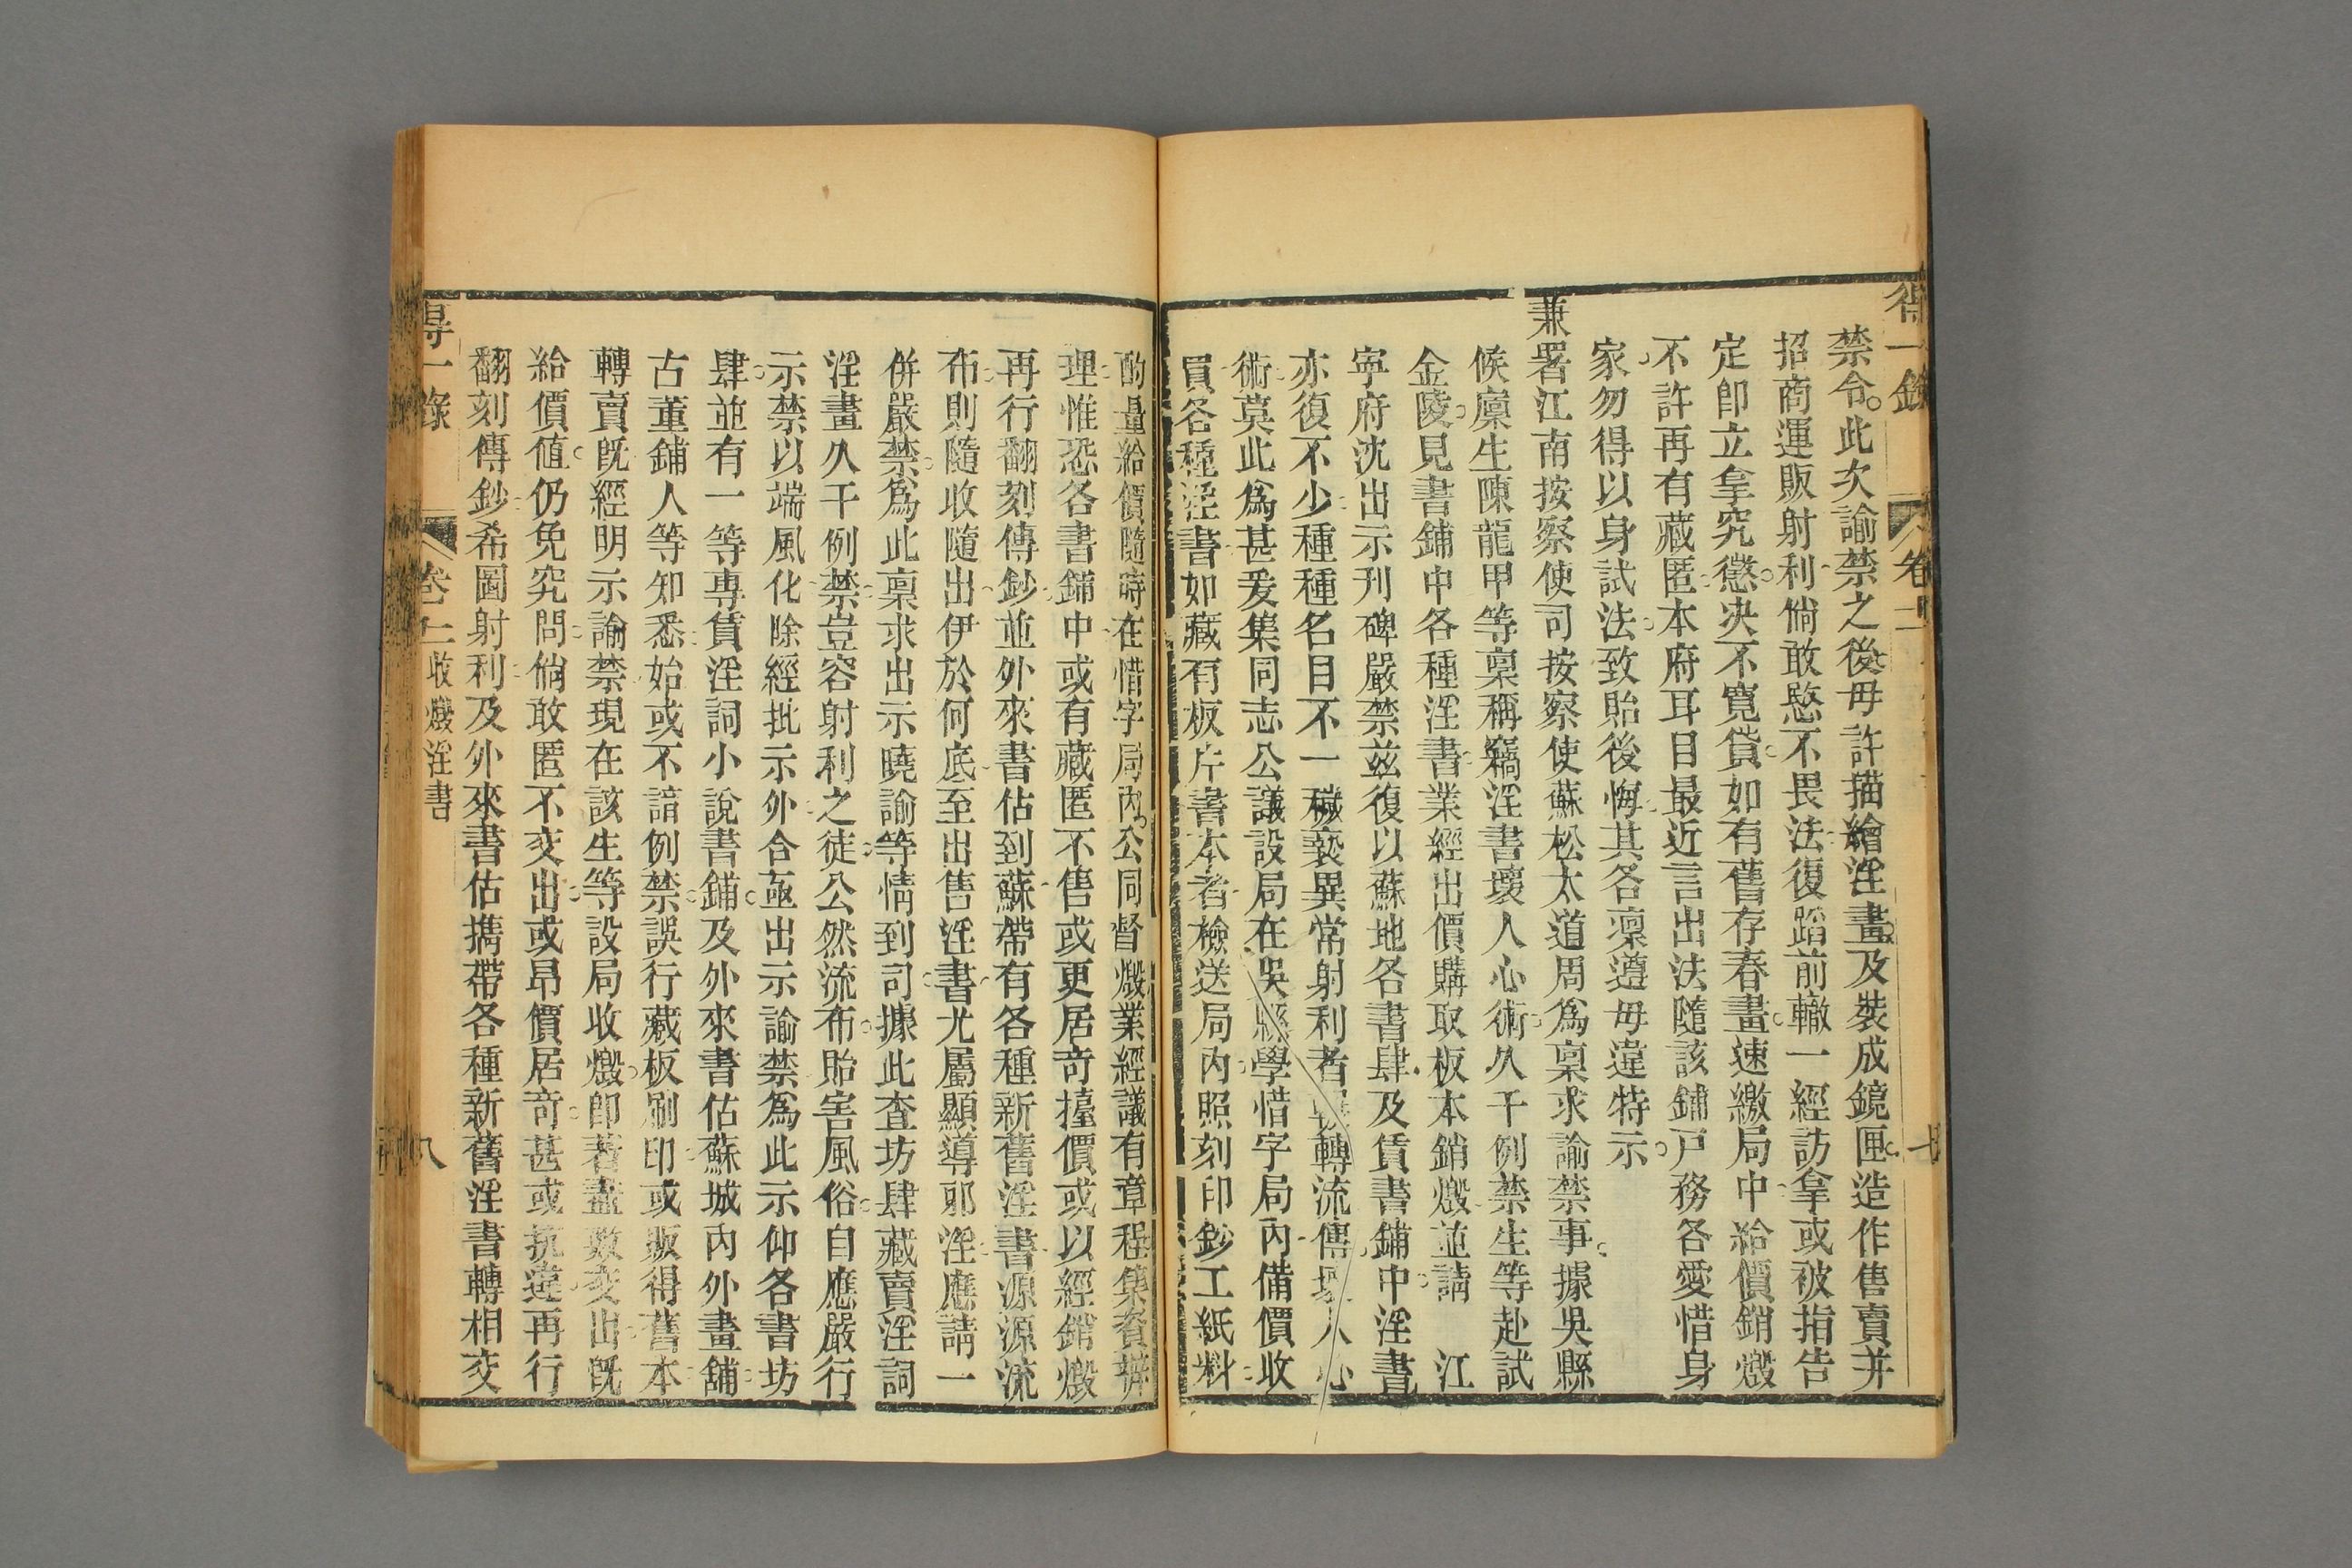 得一錄 卷十一 七
禁令此次諭禁之後毋許描繪淫畫及裝成鏡匣造作售賣并
招商運販射利倘敢愍不畏法復蹈前轍一經訪拿或被指告
定卽立拿究懲决不寬貸如有舊存春畫速繳局中給價銷燬
不許再有藏匿本府耳目最近言出法隨該鋪戸務各愛惜身
家勿得以身試法致貽後悔其各凜遵毋違特示
兼署江南按察使司按察使蘇松太道周爲稟求諭禁事據吳縣
候廩生陳龍甲等稟稱竊淫書壞人心術久干例禁生等赴試
金陵見書鋪中各種淫書業經出價購取板本銷燬並請 江
寧府沈出示刊碑嚴禁兹復以蘇地各書肆及賃書鋪中淫書
亦復不少種種名目不一穢褻異常射利者轉流傳壞人心
術莫此爲甚爰集同志公議設局在吳縣學惜字局內備價收
買各種淫書如藏有板片書本者檢送局內照刻印鈔工紙料
酌量給價隨時在惜字局內公同督燬業經議有章程集資辦
理惟恐各書鋪中或有藏匿不售或更居奇擡價或以經銷燬
再行翻刻傳鈔並外來書估到蘇帶有各種新舊淫書源源流
布則隨收隨出伊於何底至出售淫書尤屬顯導邪淫應請一
併嚴禁爲此稟求出示曉諭等情到司據此查坊肆藏賣淫詞
淫畫久干例禁豈容射利之徒公然流布貽害風俗自應嚴行
示禁以端風化除經批示外合亟出示諭禁爲此示仰各書坊
肆並有一等專賃淫詞小說書鋪及外來書估蘇城內外畫舖
古董鋪人等知悉始或不諳例禁誤行藏板刷印或販得舊本
轉賣旣經明示諭禁現在該生等設局收燬卽著盡數交出旣
給價值仍免究問倘敢匿不交出或昂價居奇甚或抗違再行
翻刻傳鈔希圖射利及外來書估擕帶各種新舊淫書轉相交
得一錄 卷十一 收燬淫書 八